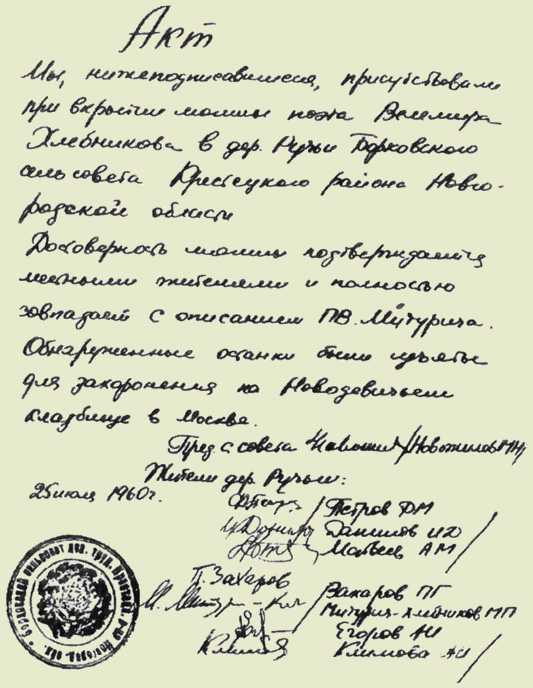 Акт
Мы, нижеподписавшиеся, присутствовали
при вскрытии могилы поэта Велемира
Хлебникова в дер. Ручьи Борковского
сельсовета Крестецкого района Новго-
родской области
Достоверность могилы подтверждается
местными жителями и полностью
зовпадает с описанием П.В. Митурича.
Обнаруженные останки были изъяты
для захоронения на Новодевичьем
кладбище в Москве.
Пред с совета /
Жители дер. Ручьи:
25 июля 1960г.
/ Петров ФМ
/ Данилов ИФ /
Матвеев АМ
П. Захаров
/ Захаров ПГ
М. Митур - Хл / Митурич-Хлебников МП
Егоров АИ
Климова / Климова АИ /